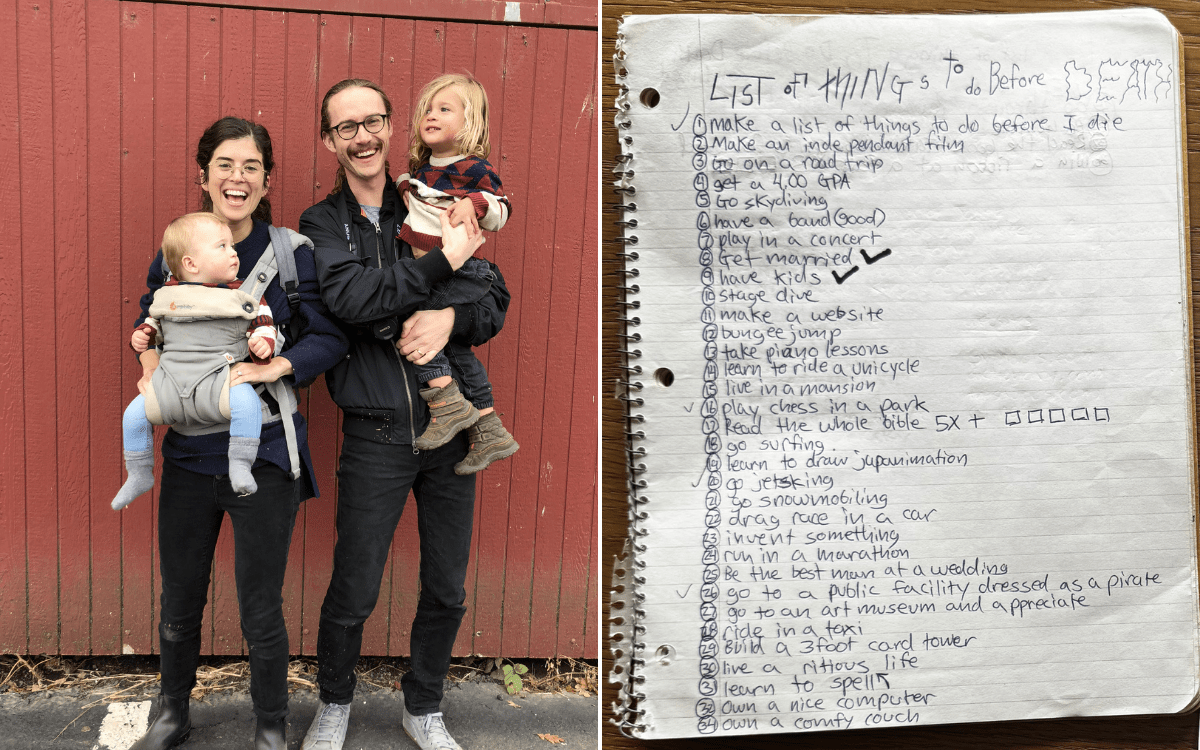 LIST of THINGs To do Before DEATH
✓ ① make a list of things to do before I die
② Make an independant film
③ Go on a road trip
④ get a 4.00 GPA
⑤ Go skydiving
⑥ have a band (good)
⑦ play in a concert
⑧ Get married ✓
⑨ have kids ✓
⑩ stage dive
⑪ make a website
⑫ bungee jump
⑬ take piano lessons
⑭ learn to ride a unicycle
⑮ live in a mansion
✓ ⑯ play chess in a park
⑰ Read the whole bible 5x + □ □ □ □ □
⑱ go surfing
⑲ learn to draw japanimation
✓ ⑳ go jetsking
㉑ go snowmobiling
㉒ drag race in a car
㉓ invent something
㉔ run in a marathon
㉕ Be the best man at a wedding
✓ ㉖ go to a public facility dressed as a pirate
㉗ go to an art museum and appreciate
㉘ ride in a taxi
㉙ Build a 3foot card tower
㉚ live a rittous life
㉛ learn to spell
㉜ Own a nice computer
㉞ own a comfy couch